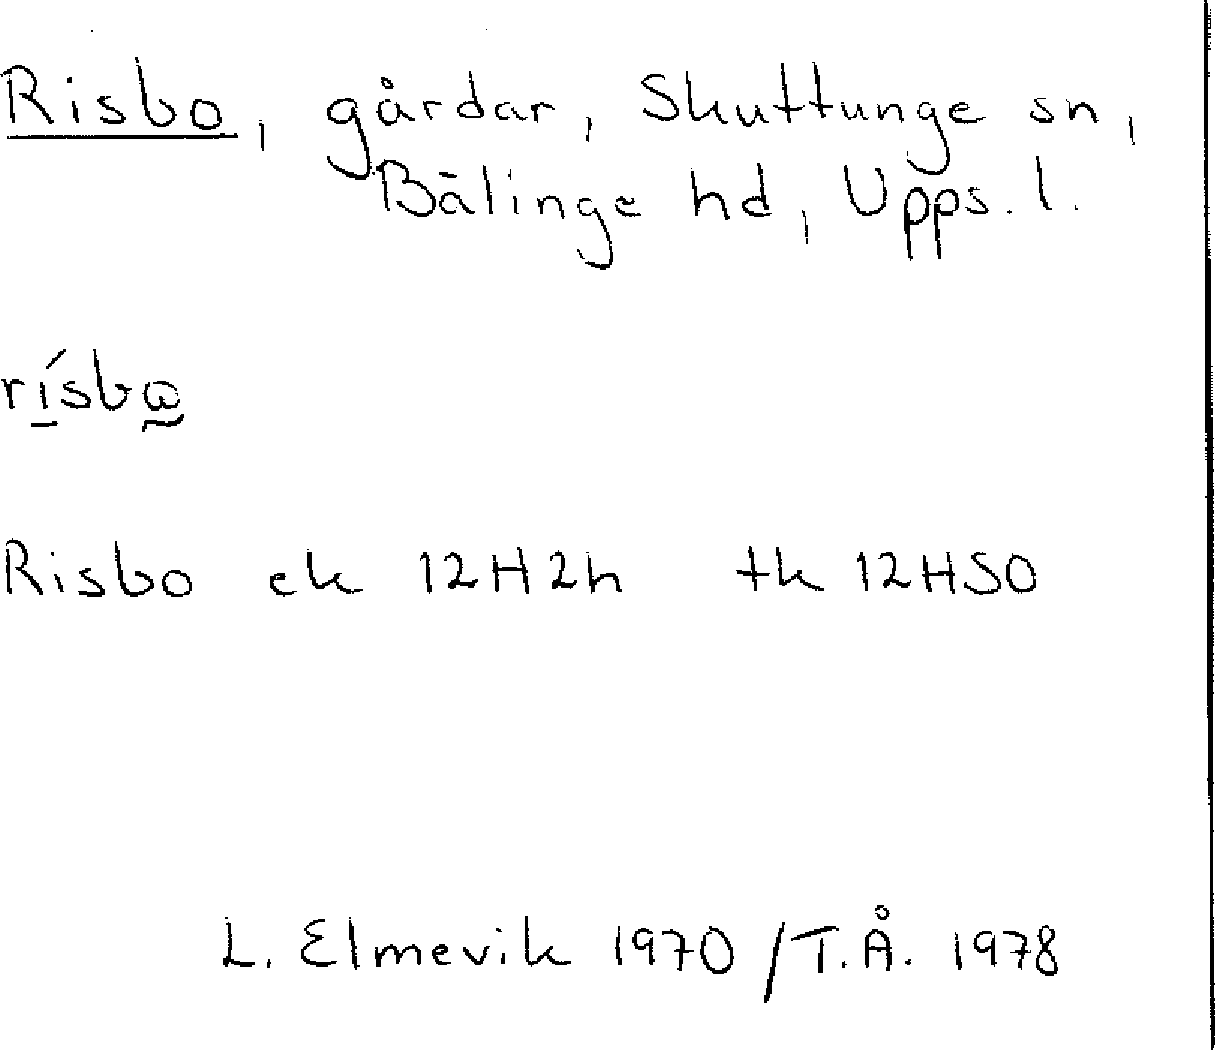 Risbo, gårdar, Skuttunge sn,
Bälinge hd, Upps. l.
Risbo ek 12H2h tk 12HSO
L. Elmevik 1970 / T.Å. 1978